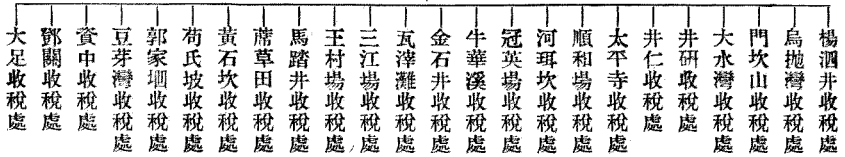 楊泗井收稅處
烏拋灣收稅處
門坎山收稅處
大水灣收稅處
井研收稅處
井仁收稅處
太平寺收稅處
順和場收稅處
河珥坎收稅處
冠英場收稅處
牛華溪收稅處
金石井收稅處
瓦滓灘收稅處
三江場收稅處
王村場收稅處
馬踏井收稅處
蓆草田收稅處
黃石坎收稅處
荀氏坡收稅處
郭家堋收稅處
豆芽灣收稅處
資中收稅處
鄧關收稅處
大足收稅處